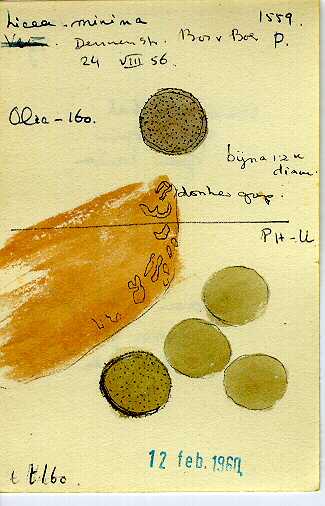 Licea minima 1559.
Dennenstr. Bos v Bos p.
24 VIII 56.
Obra - 160.
bijna 12 μ
diam.
donker grijs.
PH-U
12 feb. 1960
t t 160.